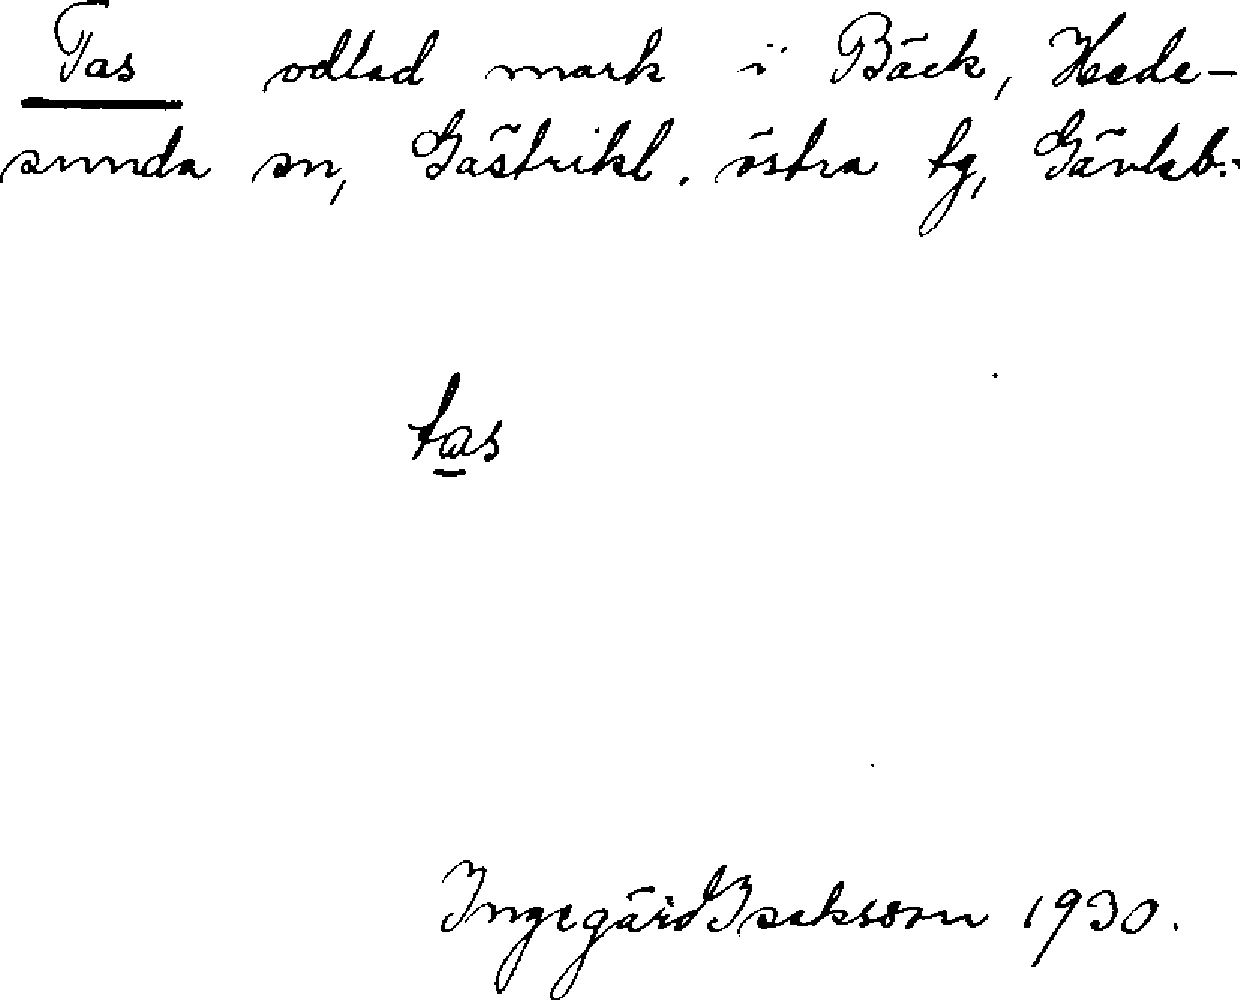 Tas odlad mark i Bäck, Hede-
sunda sn, Gästrikl. östra tg, Gävleb.
tas
Ingegärd Isaksson 1930.